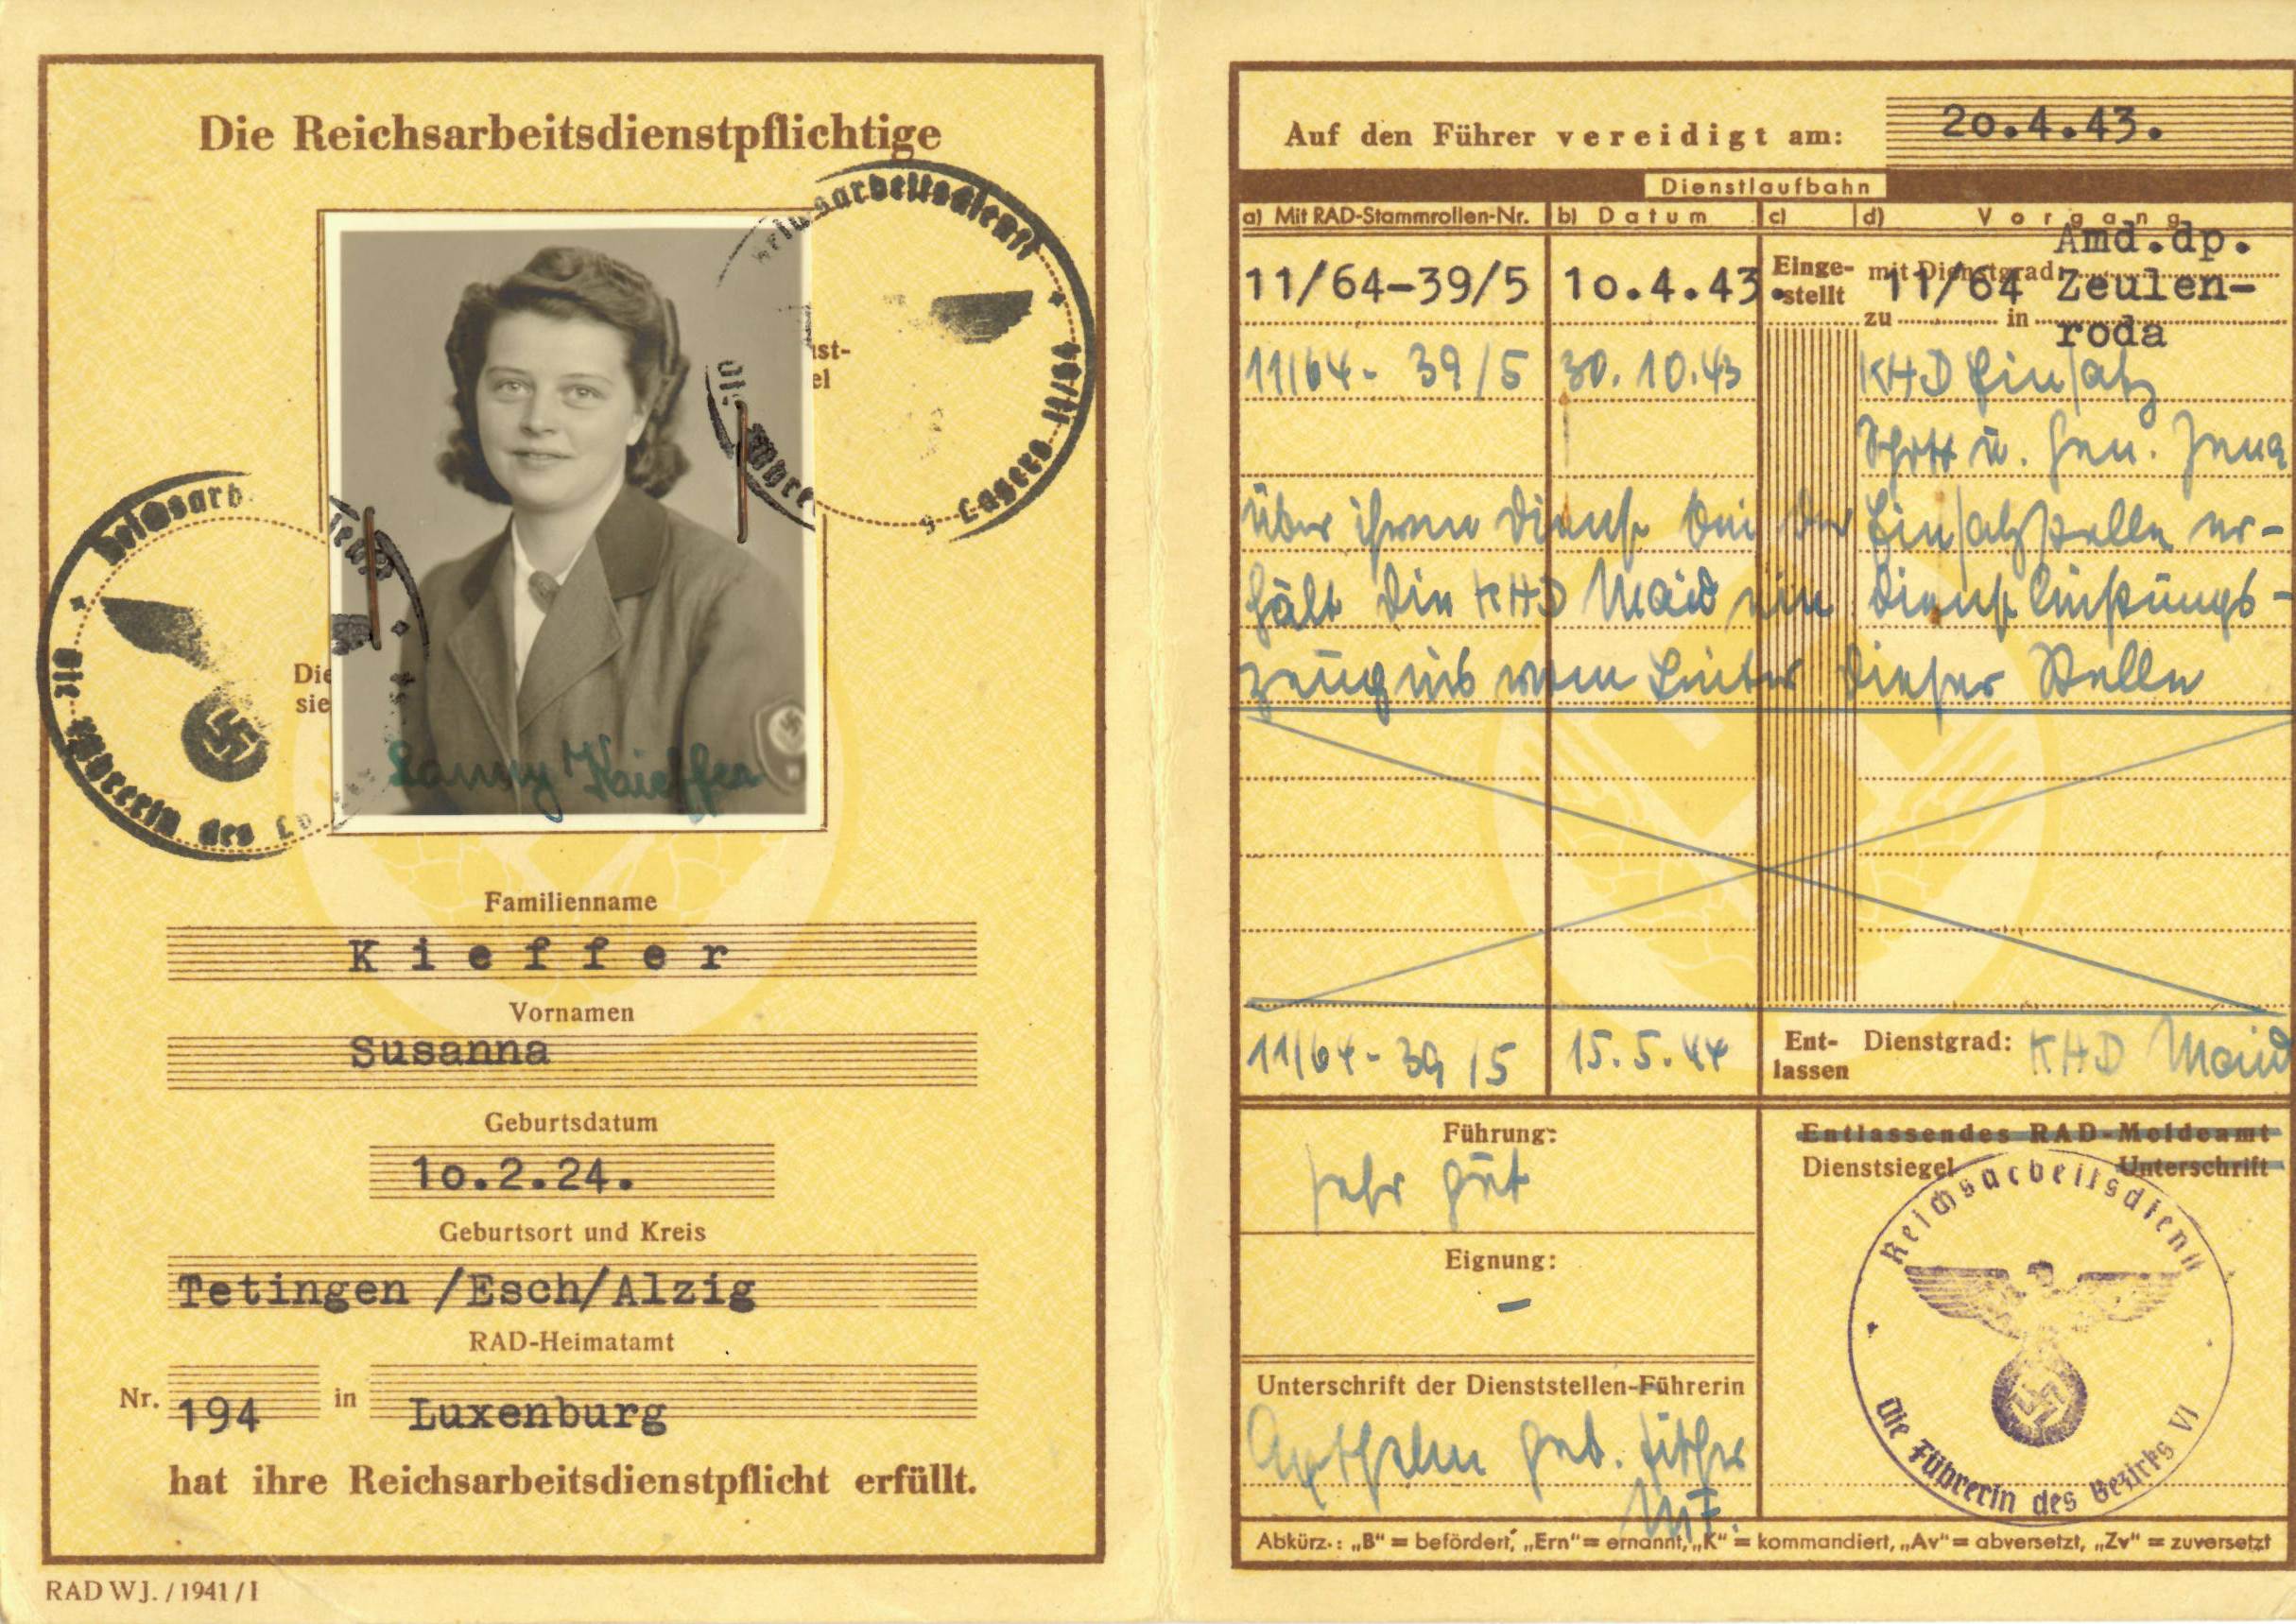 Die Reichsarbeitsdienstpflichtige
Reichsarbeitsdienst
Die Führerin des Lagers 11/64
Reichsarb
ienst
Die Führerin des La
nst-
el
Die
sie
Familienname
Kieffer
Vornamen
Susanna
Geburtsdatum
10.2.24.
Geburtsort und Kreis
Tetingen /Esch/Alzig
RAD-Heimatamt
Nr. 194 in Luxenburg
hat ihre Reichsarbeitsdienstpflicht erfüllt.
RAD WJ. / 1941 / I
Auf den Führer vereidigt am: 20.4.43.
Dienstlaufbahn
a) Mit RAD-Stammrollen-Nr. b) Datum c) d) Vorgang
Amd.dp.
11/64-39/5 10.4.43. Einge- mit Dienstgrad
stellt 11/64 Zeulen-
zu in
roda
11/64- 39/5 30.10.43 KHD Einsatz
Schott u. Gen. Jena
über ihren Dienst bei der Einsatzstelle er-
hält die KHD Maid ein Dienstleistungs-
zeugnis vom Leiter dieser Stelle
11/64- 39/5 15.5.44 Ent- Dienstgrad: KHD Maid
lassen
Führung:
sehr gut
Eignung:
–
Unterschrift der Dienststellen-Führerin
geb.
MF.
Entlassendes RAD-Meldeamt
Dienstsiegel Unterschrift
Reichsarbeitsdienst
Die Führerin des Bezirks VI
Abkürz.: „B“ = befördert, „Ern“ = ernannt, „K“ = kommandiert, „Av“ = abversetzt, „Zv“ = zuversetzt